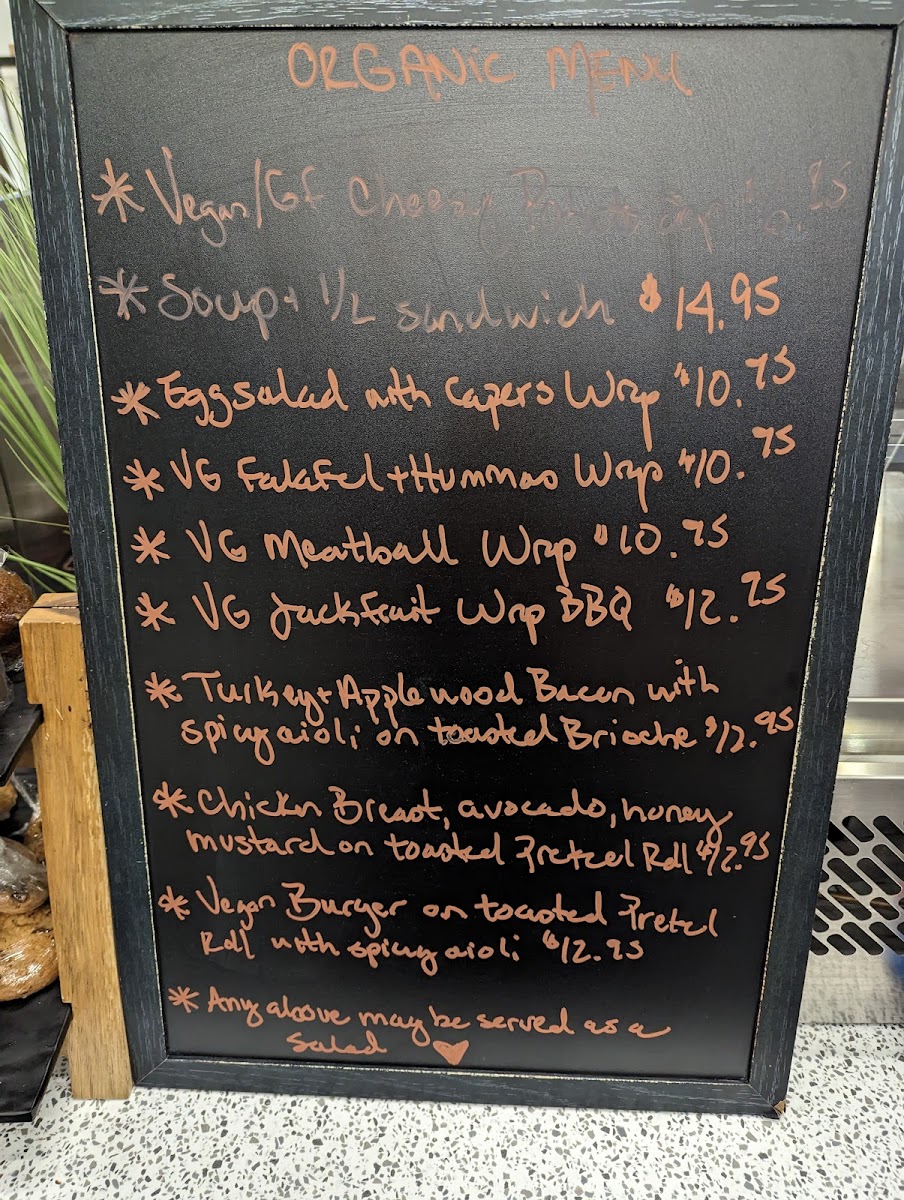 ORGANIC MENU
* Vegan/GF Cheesy
* Soup + 1/2 sandwich $14.95
* Eggsalad with Capers Wrap $10.75
* VG Falafel + Hummas Wrap $10.75
* VG Meatball Wrap $10.75
* VG Jackfruit Wrap BBQ $12.95
* Turkey + Applewood Bacon with
spicy aioli on toasted Brioche $12.95
* Chicken Breast, avocado, honey
mustard on toasted Pretzel Roll $12.95
* Vegan Burger on toasted Pretzel
Roll with spicy aioli $12.95
* Any above may be served as a
Salad ♥